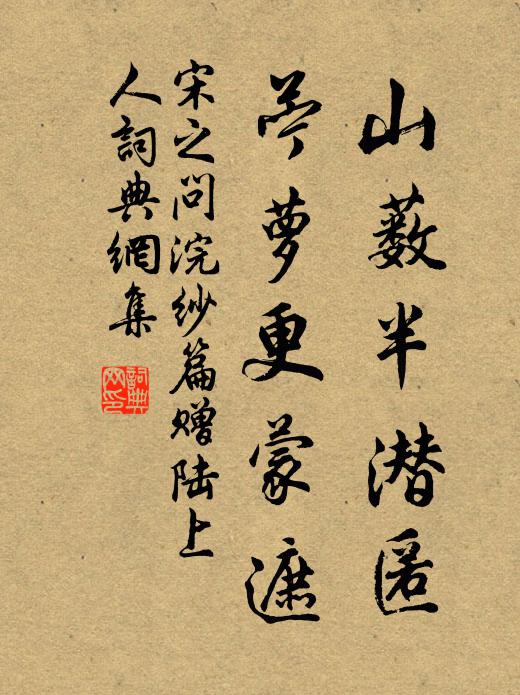 山薮半潜匿
苎萝更蒙遮
宋之问浣纱篇赠陆上
人詞典網集
詞典网印